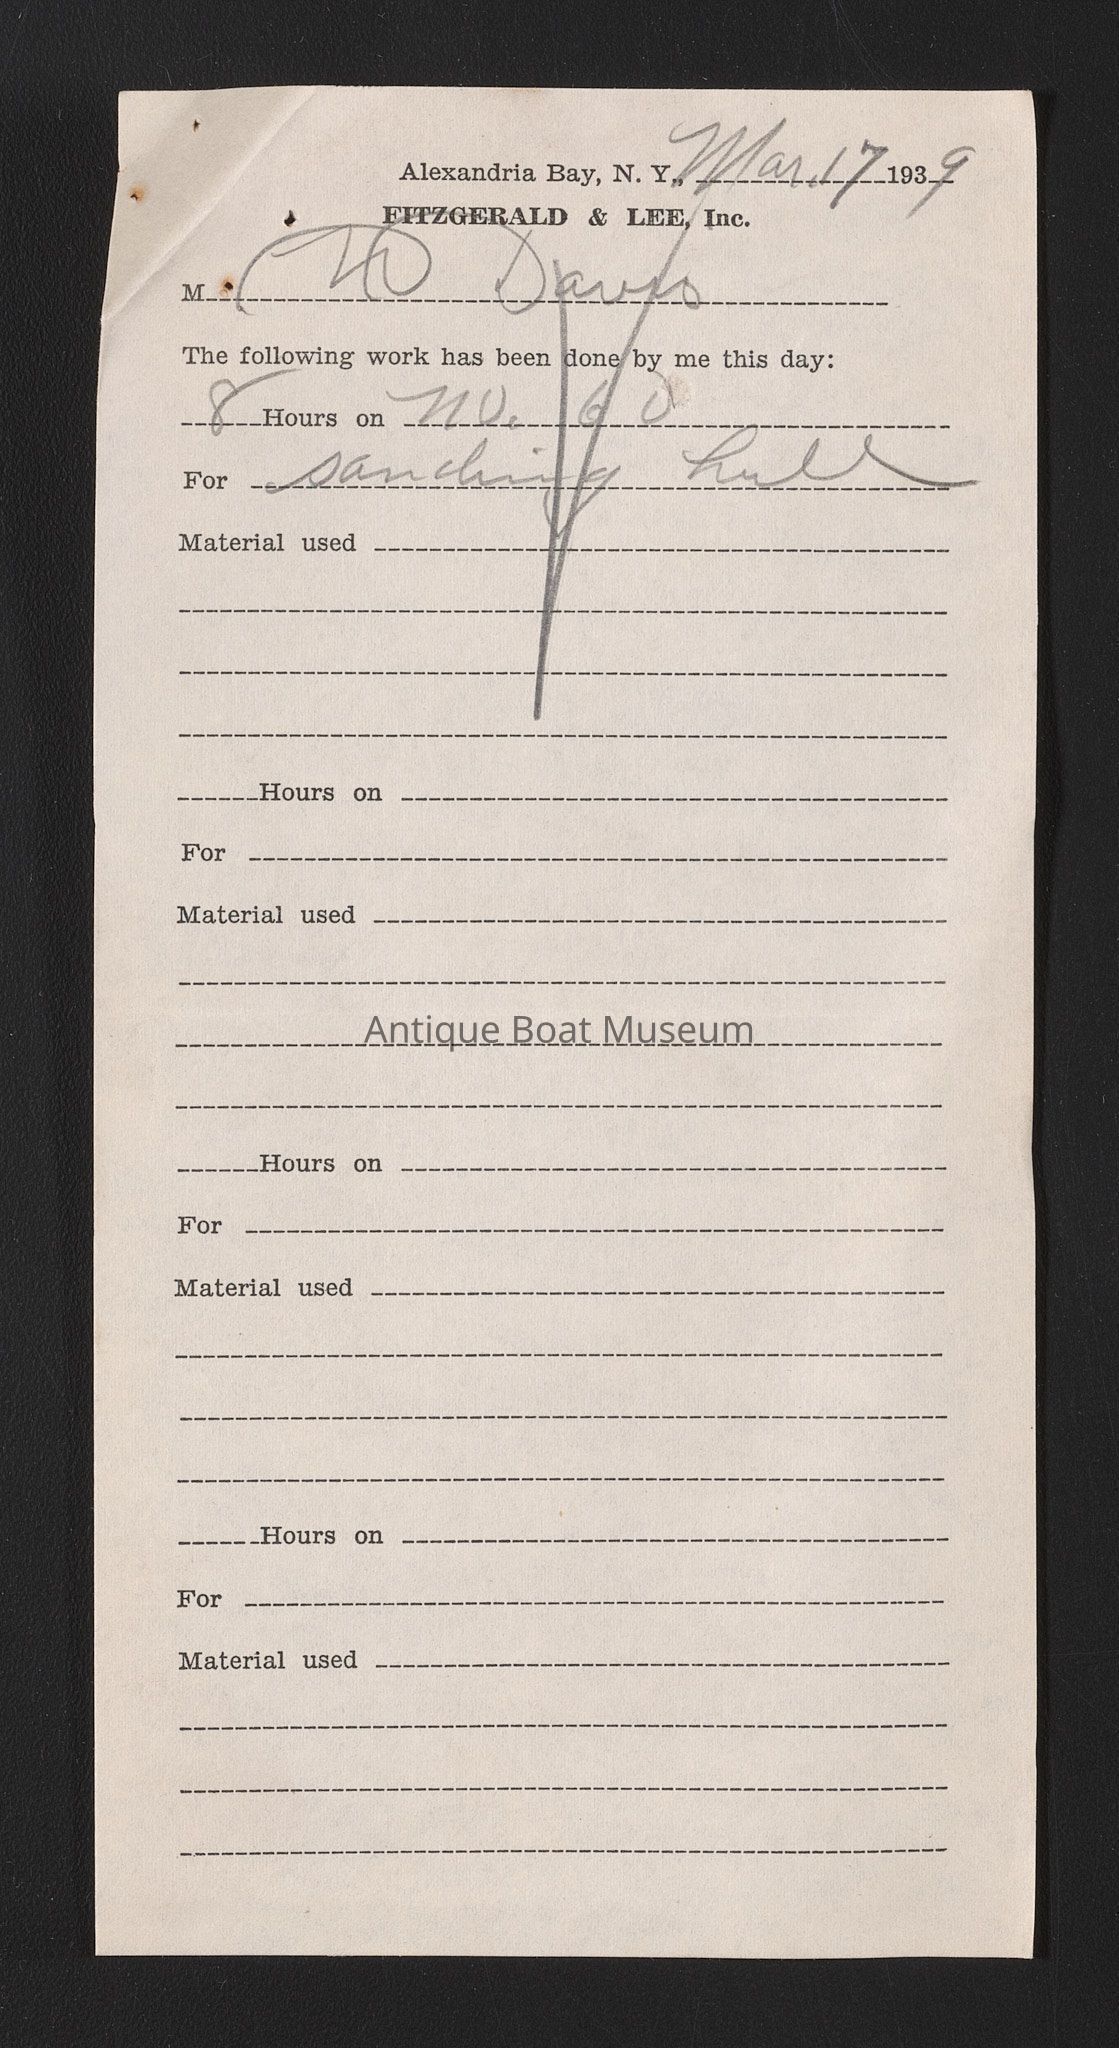 Alexandria Bay, N. Y., Mar. 17 1939
FITZGERALD & LEE, Inc.
M Davis
The following work has been done by me this day:
8 Hours on No. 60
For sanding hull
Material used
Hours on
For
Material used
Antique Boat Museum
Hours on
For
Material used
Hours on
For
Material used